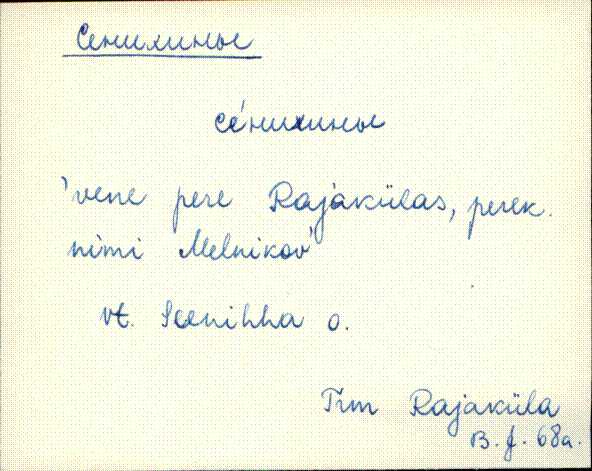 Сенихины
се́нихины
'vene pere Rajakülas, perek.
nimi Melnikov'
vt. Seenihha o.
Trm Rajaküla
B. J. 68a.